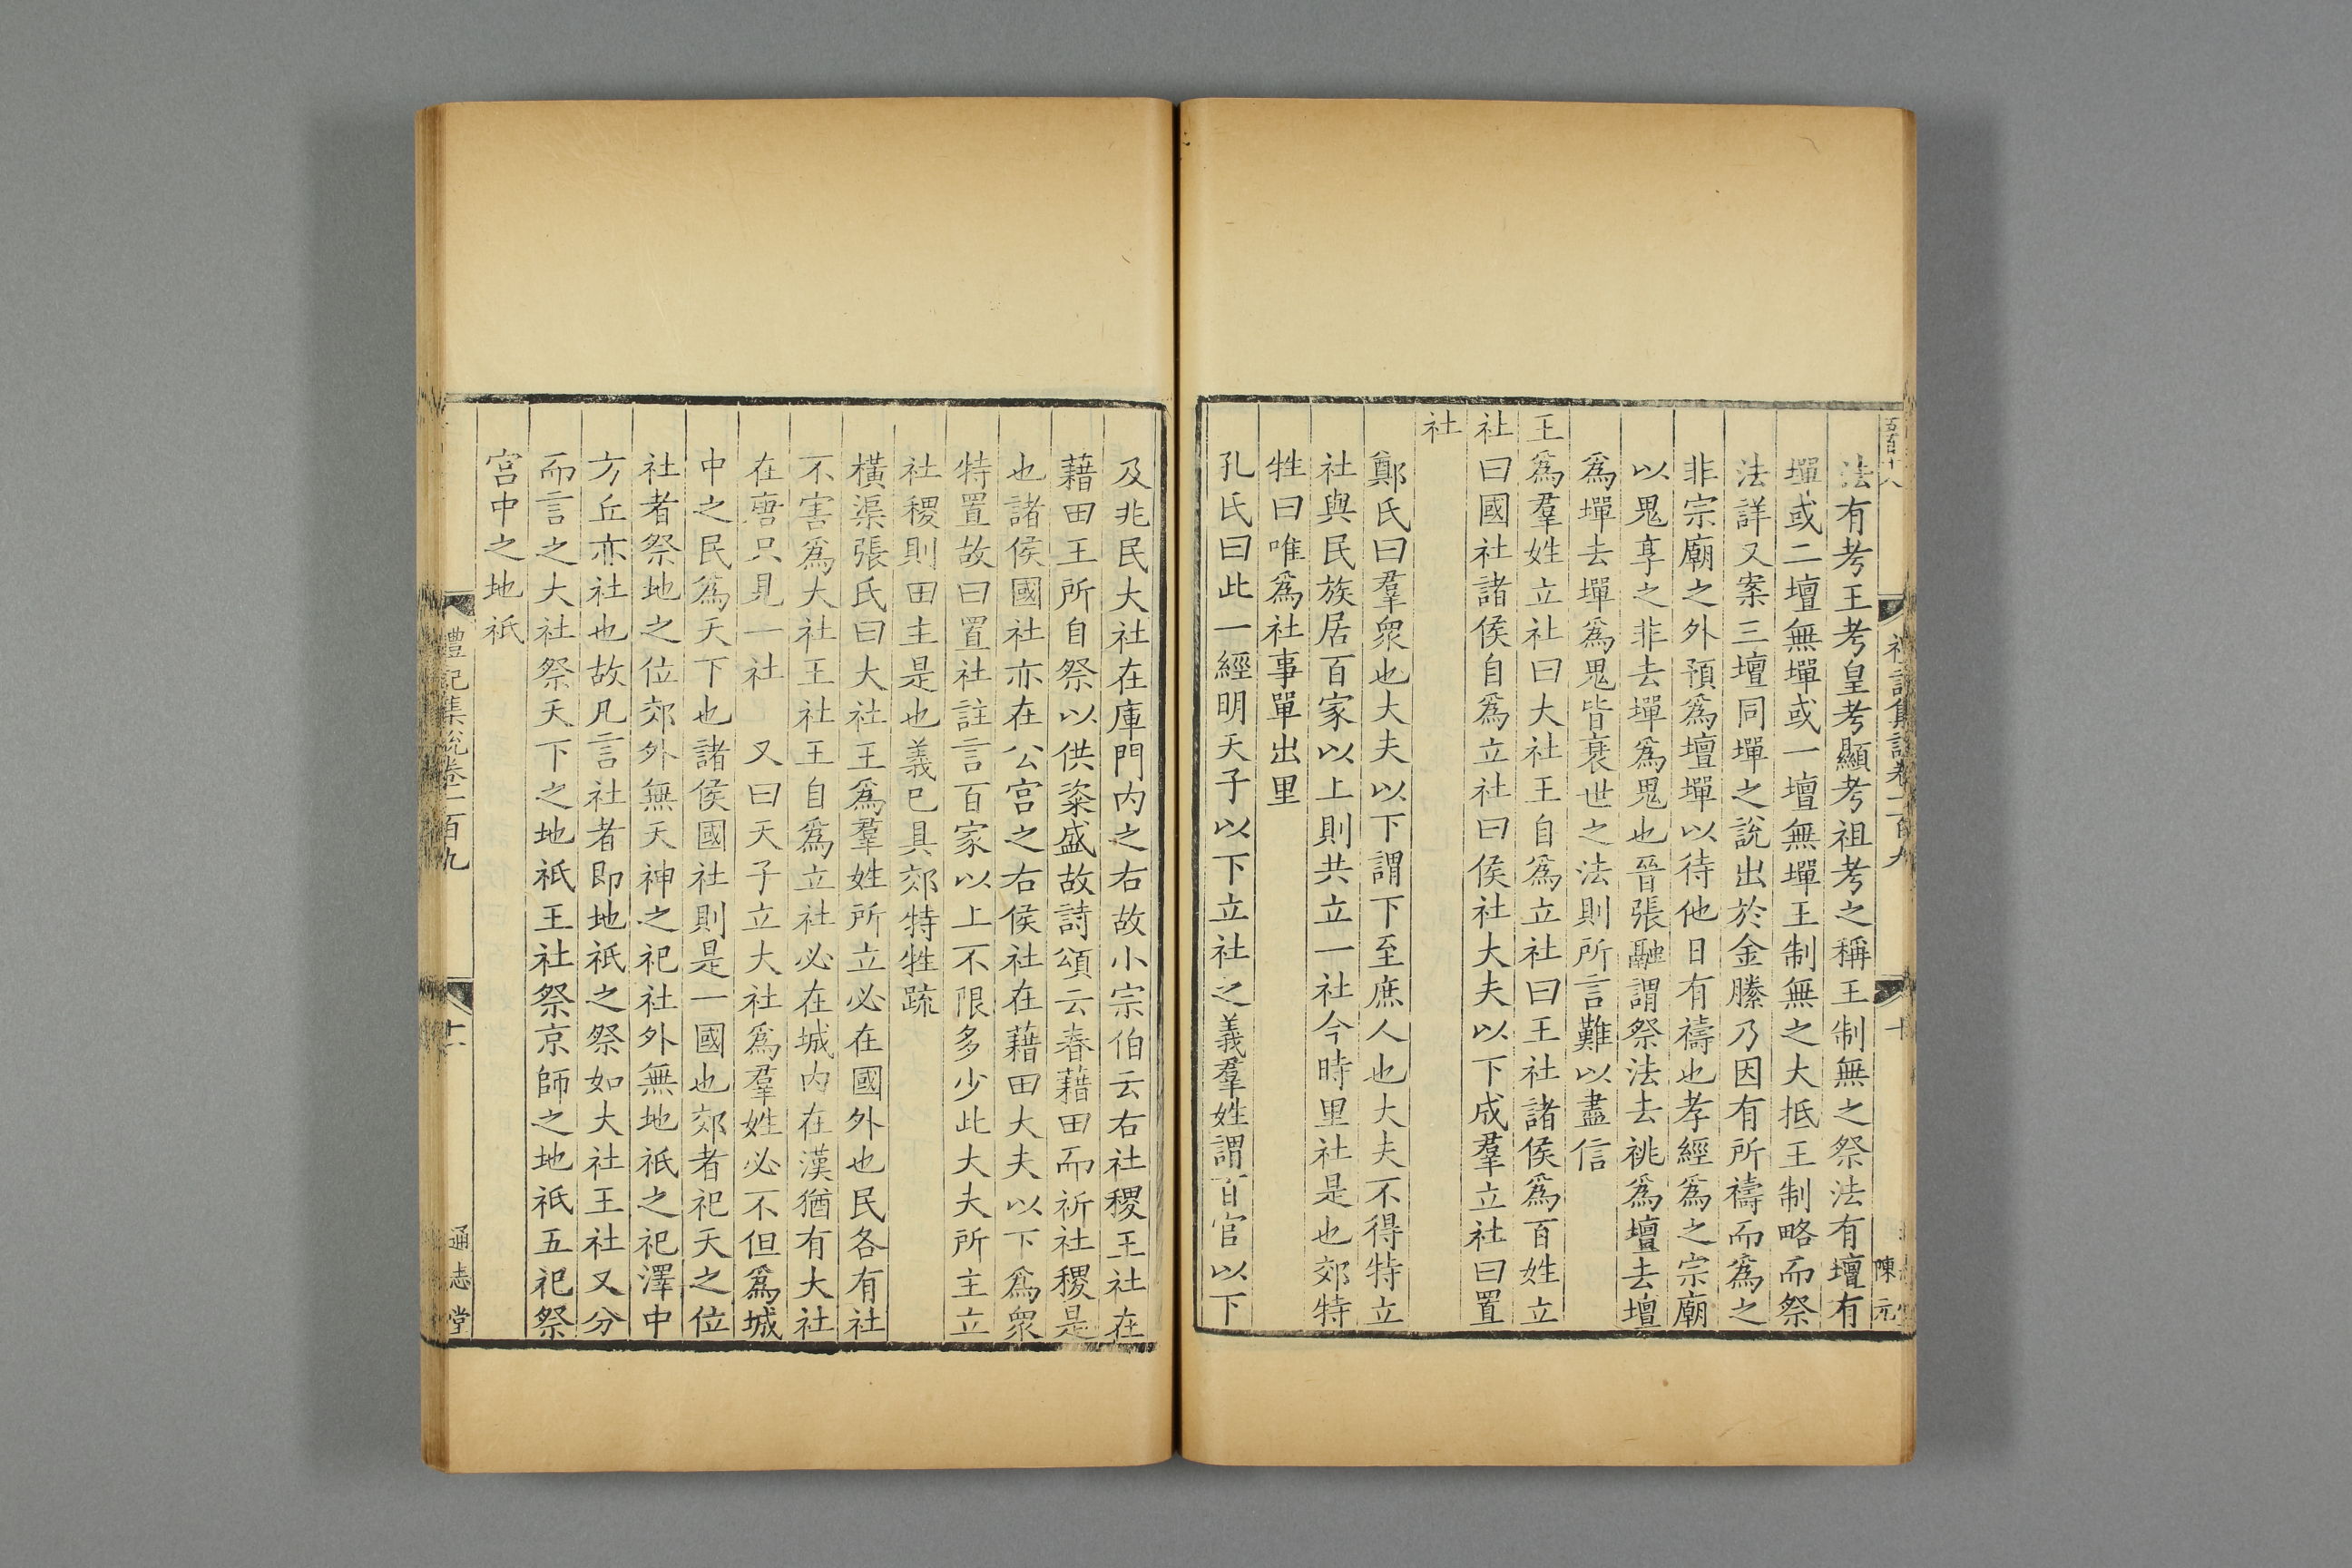 五百十八
禮記集說卷一百九
十
陳元
法有考王考皇考顯考祖考之稱王制無之祭法有壇有
墠或二壇無墠或一壇無墠王制無之大抵王制略而祭
法詳又案三壇同墠之說出於金縢乃因有所禱而爲之
非宗廟之外預爲壇墠以待他日有禱也孝經爲之宗廟
以鬼享之非去墠爲鬼也晉張融謂祭法去祧爲壇去壇
爲墠去墠爲鬼皆衰世之法則所言難以盡信
王爲羣姓立社曰大社王自爲立社曰王社諸侯爲百姓立
社曰國社諸侯自爲立社曰侯社大夫以下成羣立社曰置
社
鄭氏曰羣衆也大夫以下謂下至庶人也大夫不得特立
社與民族居百家以上則共立一社今時里社是也郊特
牲曰唯爲社事單出里
孔氏曰此一經明天子以下立社之義羣姓謂百官以下
及兆民大社在庫門內之右故小宗伯云右社稷王社在
藉田王所自祭以供粢盛故詩頌云春藉田而祈社稷是
也諸侯國社亦在公宮之右侯社在藉田大夫以下爲衆
特置故曰置社註言百家以上不限多少此大夫所主立
社稷則田主是也義已具郊特牲疏
橫渠張氏曰大社王爲羣姓所立必在國外也民各有社
不害爲大社王社王自爲立社必在城內在漢猶有大社
在唐只見一社 又曰天子立大社爲羣姓必不但爲城
中之民爲天下也諸侯國社則是一國也郊者祀天之位
社者祭地之位郊外無天神之祀社外無地祇之祀澤中
方丘亦社也故凡言社者即地祇之祭如大社王社又分
而言之大社祭天下之地祇王社祭京師之地祇五祀祭
宮中之地祇
禮記集說卷一百九
十一
通志堂